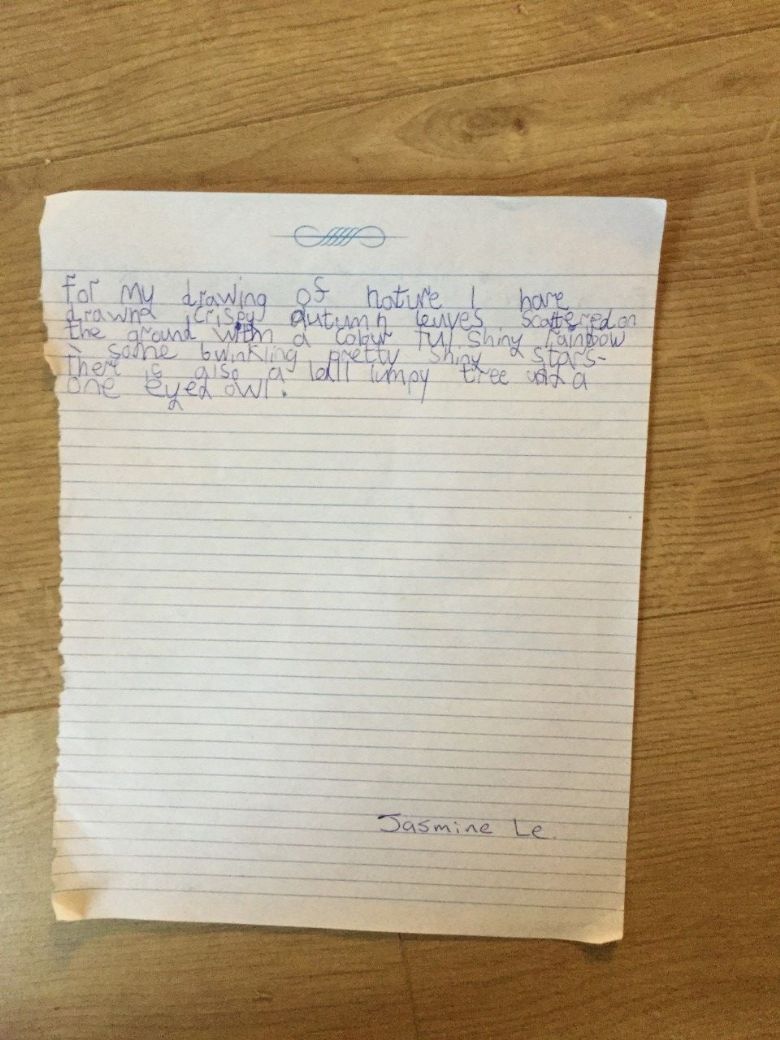 for my drawing of nature I have
drawnd crispy autumn leuves scattered on
the ground with a colour ful shiny rainbow
some twinkling pretty shiny stars-
There is also a tall lumpy tree and a
one eyed owl.
Jasmine Le